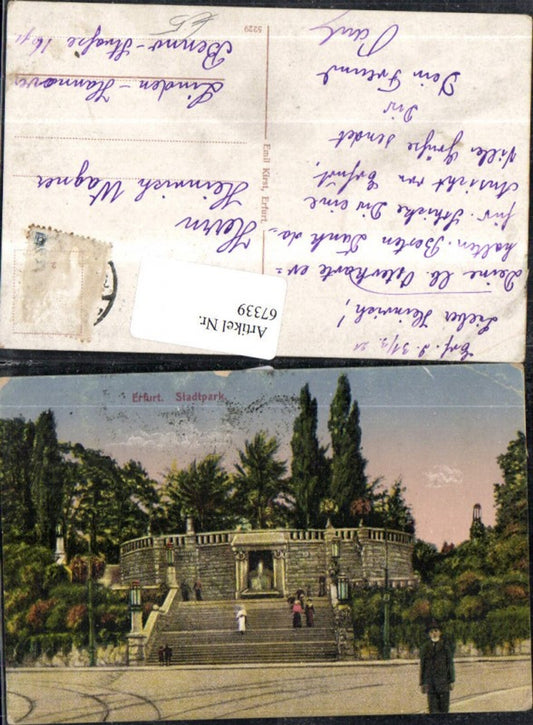 Erf. d. 31/3. 21
Lieber Heinrich!
Deine lb. Osterkarte er-
halten. Besten Dank da-
für. Schicke Dir eine
Ansicht von Erfurt.
Viele Grüße sendet
Dir
Dein Freund
Paul
Emil Kirst, Erfurt.
5229
Herrn
Heinrich Wagner
Linden-Hannover
Benno-Straße
Artikel Nr.
67339
Erfurt. Stadtpark